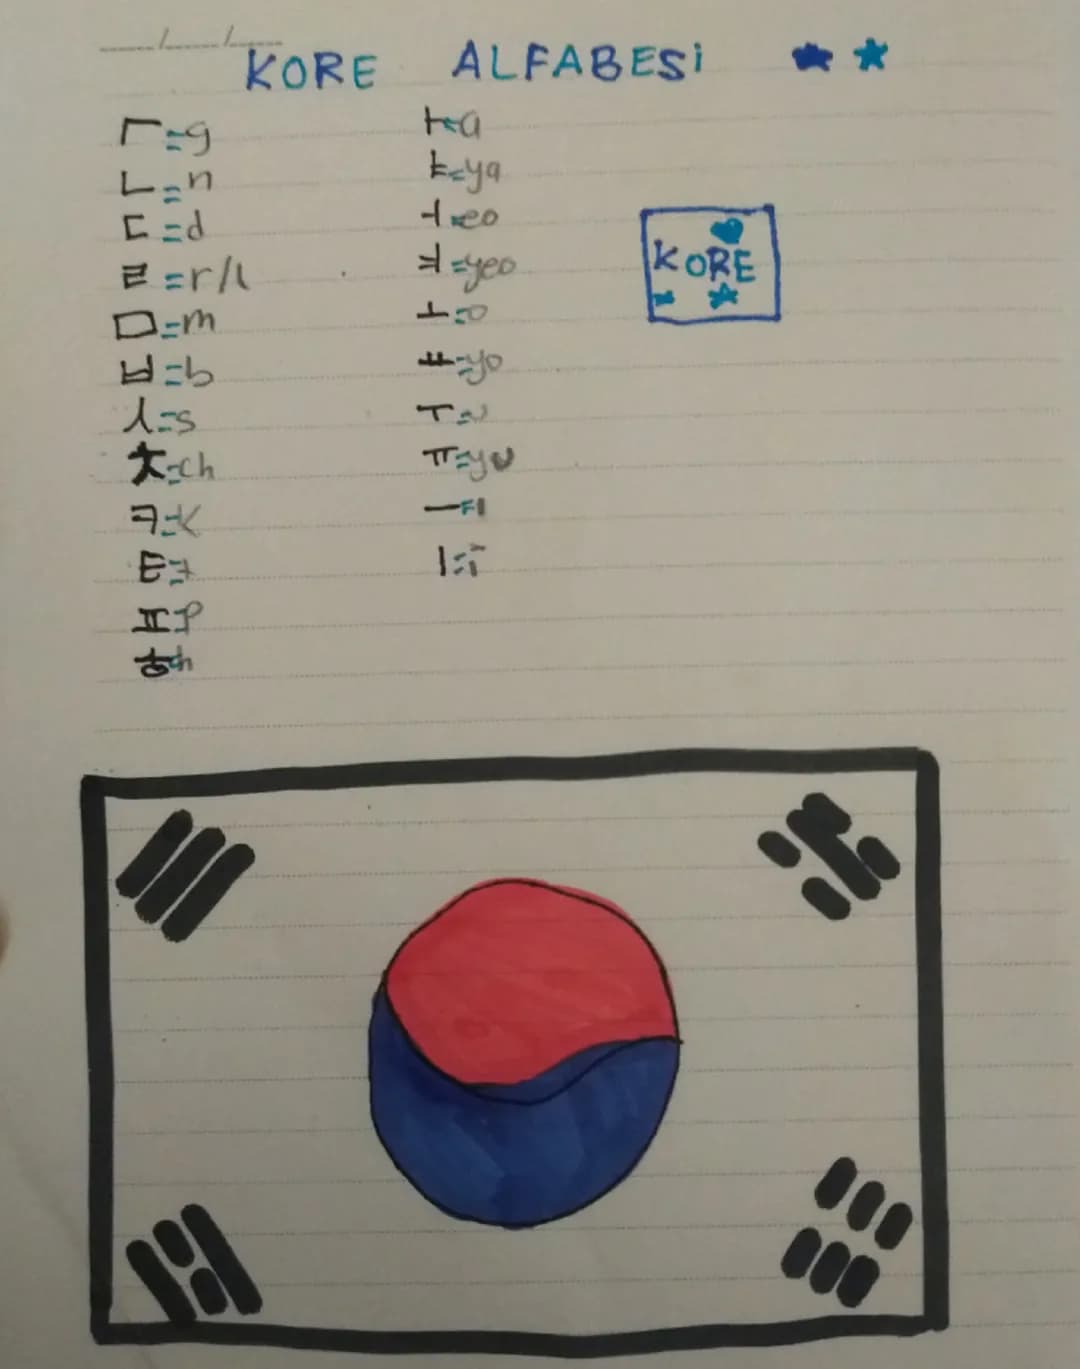 KORE ALFABESİ
ㄱ=g
ㄴ=n
ㄷ=d
ㄹ=r/l
ㅁ=m
ㅂ=b
ㅅ=s
ㅊ=ch
ㅋ=k
ㅌ=
ㅍ=p
ㅎ=h
ㅏ=a
ㅑ=ya
ㅓ=eo
ㅕ=yeo
ㅗ=o
ㅛ=yo
ㅜ=u
ㅠ=yu
ㅡ=ı
ㅣ=i
KORE